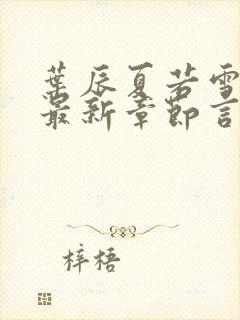 葉辰夏若雪
最新章節言
梓梧